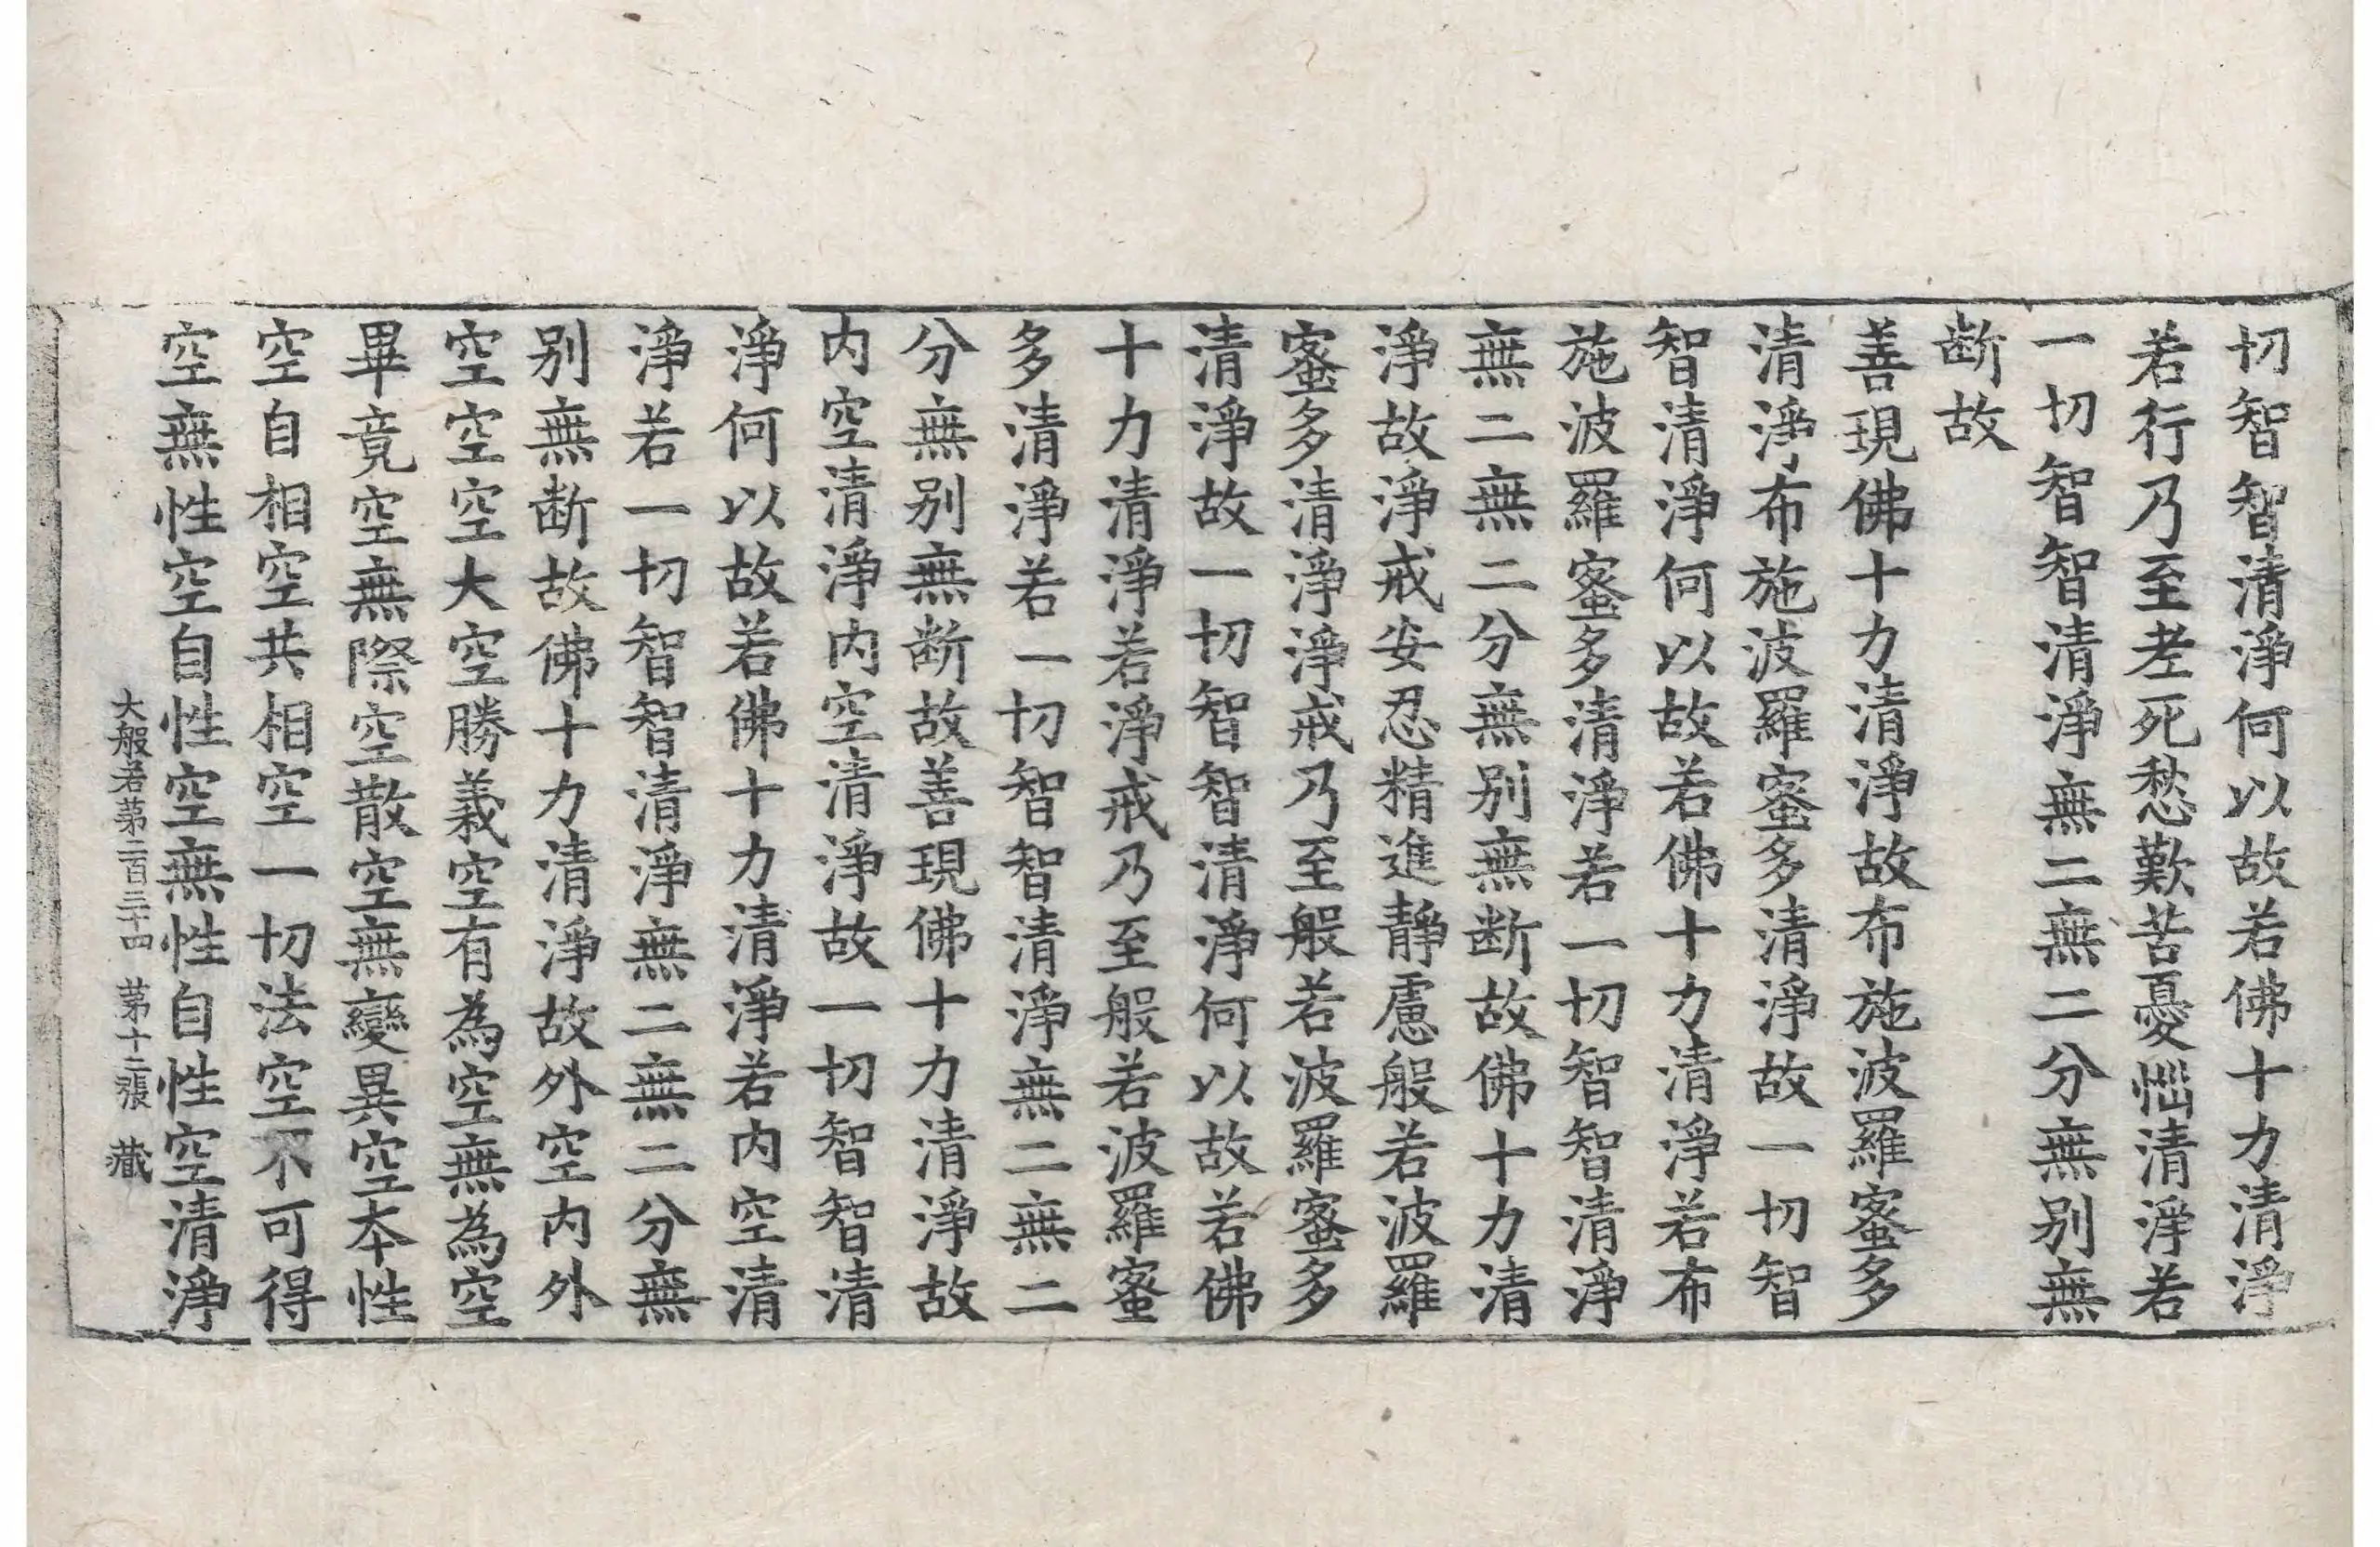 切智智清淨何以故若佛十力清淨
若行乃至老死愁歎苦憂惱清淨若
一切智智清淨無二無二分無別無
断故
善現佛十力清淨故布施波羅蜜多
清淨布施波羅蜜多清淨故一切智
智清淨何以故若佛十力清淨若布
施波羅蜜多清淨若一切智智清淨
無二無二分無別無断故佛十力清
淨故淨戒安忍精進靜慮般若波羅
蜜多清淨淨戒乃至般若波羅蜜多
清淨故一切智智清淨何以故若佛
十力清淨若淨戒乃至般若波羅蜜
多清淨若一切智智清淨無二無二
分無別無断故善現佛十力清淨故
内空清淨内空清淨故一切智智清
淨何以故若佛十力清淨若内空清
淨若一切智智清淨無二無二分無
別無断故佛十力清淨故外空内外
空空空大空勝義空有為空無為空
畢竟空無際空散空無變異空本性
空自相空共相空一切法空不可得
空無性空自性空無性自性空清淨
大般若第二百三十四 第十二張 藏